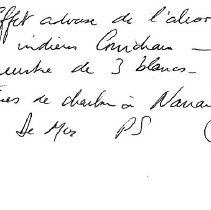 effet adverse de l'alcool
indiens Cowichan –
meurtre de 3 blancs –
de charbon à Nanai
De Mos PS (